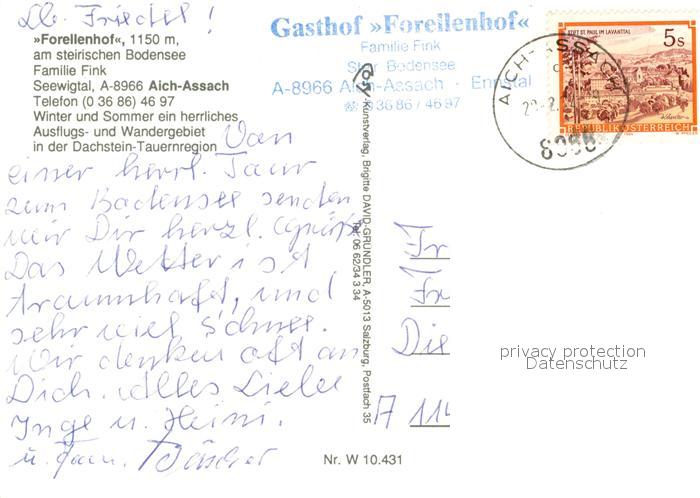 Lb. Friedel!
»Forellenhof«, 1150 m,
am steirischen Bodensee
Familie Fink
Seewigtal, A-8966 Aich-Assach
Telefon (0 36 86) 46 97
Winter und Sommer ein herrliches
Ausflugs- und Wandergebiet
in der Dachstein-Tauernregion
Von
einer herrl. Tour
zum Bodensee senden
wir Dir herzl. Grüße
Das Wetter ist
traumhaft, und
sehr viel Schnee.
Wir denken oft an
Dich. Alles Liebe
Inge u. Heini.
u. Fam.
Gasthof »Forellenhof«
Familie Fink
Bodensee
A-8966 Aich-Assach - Ennstal
☎ 0 36 86 / 46 97
Kunstverlag, Brigitte DAVID-GRUNDLER, A-5013 Salzburg, Postfach 35
Tel. 06 62/34 3 34
AICH-ASSACH
STIFT ST. PAUL IM LAVANTTAL
5s
REPUBLIK ÖSTERREICH
Fr
Die
A 114
privacy protection
Datenschutz
Nr. W 10.431